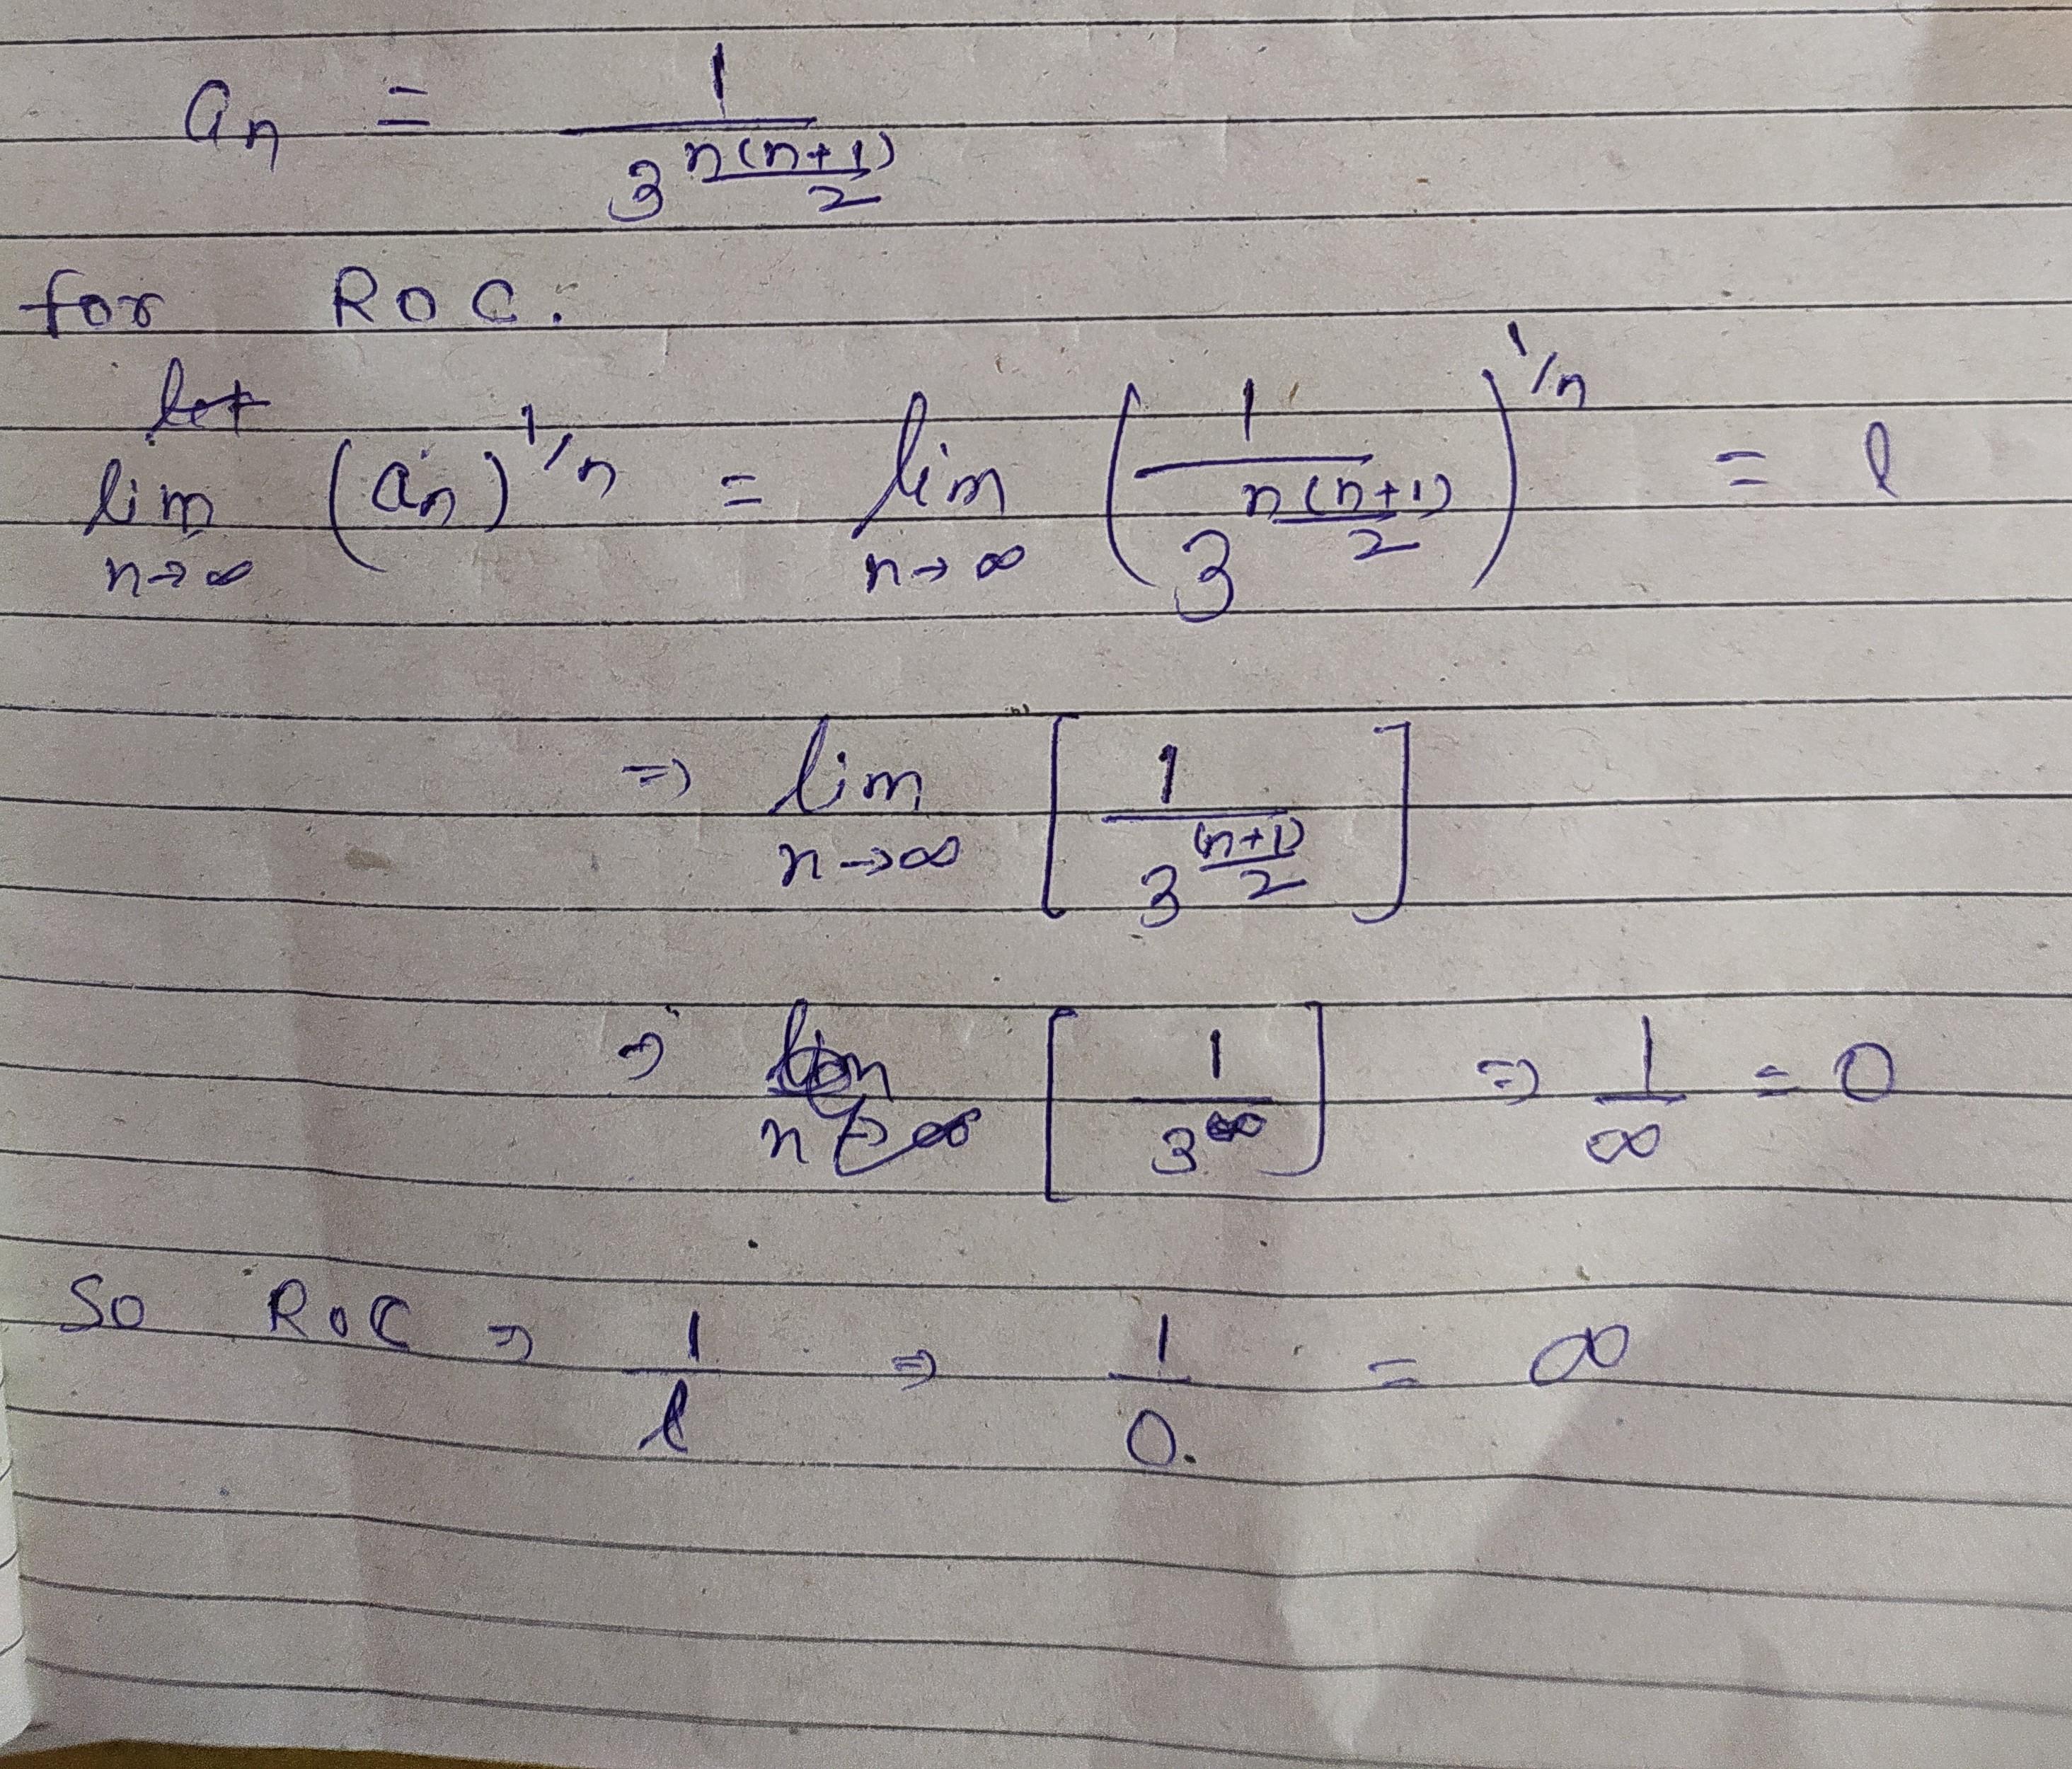 aₙ = 1 / 3^(n(n+1)/2)
for ROC:
let
lim n→∞ (aₙ)^(1/n) = lim n→∞ (1 / 3^(n(n+1)/2))^(1/n) = l
⇒ lim n→∞ [1 / 3^((n+1)/2)]
⇒ [1 / 3^∞] ⇒ 1/∞ = 0
So ROC ⇒ 1/l ⇒ 1/0. = ∞